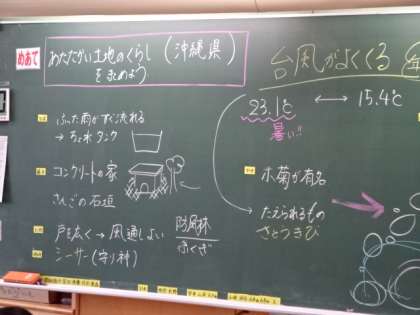 めあて
あたたかい土地のくらし (沖縄県)
をまとめよう
台風がよくくる
23.1℃ ↔ 15.4℃
暑い!!
ふった雨がすぐ流れる
→ 貯水タンク
コンクリートの家
さんごの石垣
戸を広く → 風通しよい
防風林
ふくぎ
シーサー(守り神)
小菊が有名
たえられるもの
さとうきび